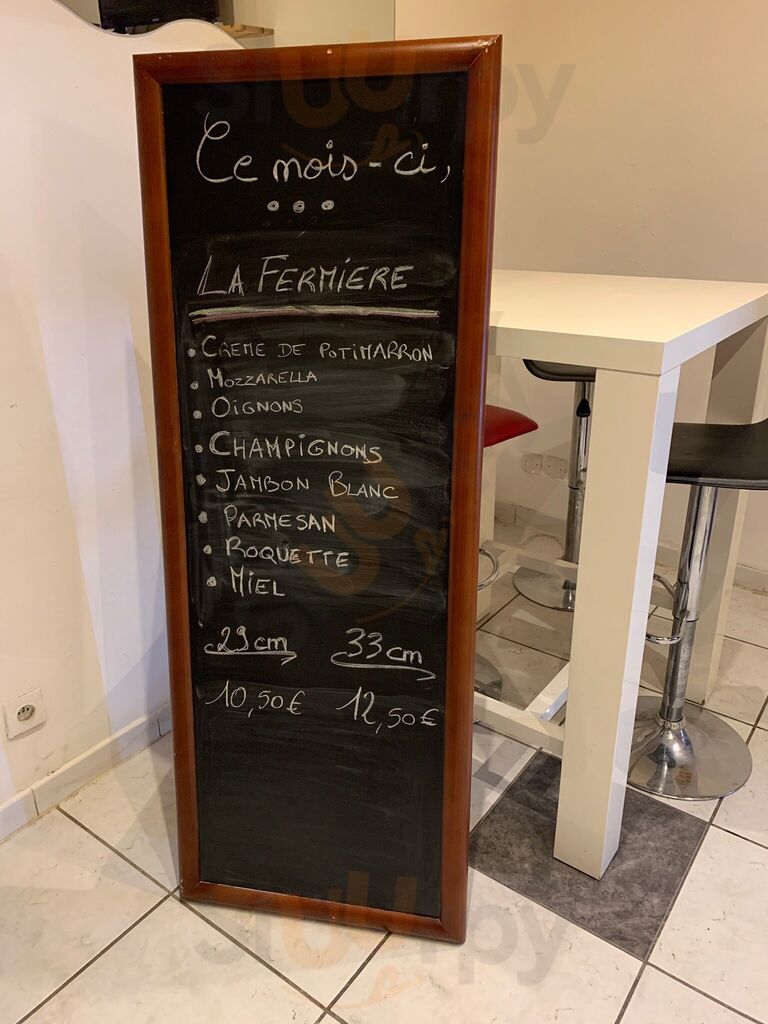 sluurpy
Ce mois-ci,
...
LA FERMIERE
• CREME DE POTIMARRON
• MOZZARELLA
• OIGNONS
• CHAMPIGNONS
• JAMBON BLANC
• PARMESAN
• ROQUETTE
• MIEL
29cm 33cm
10,50€ 12,50€
sluurpy